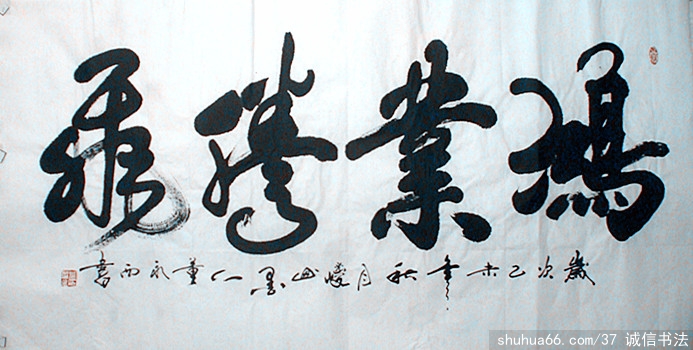 鴻業騰飛
歲次乙未年秋月山墨人董雨書
shuhua66.com/37 诚信书法